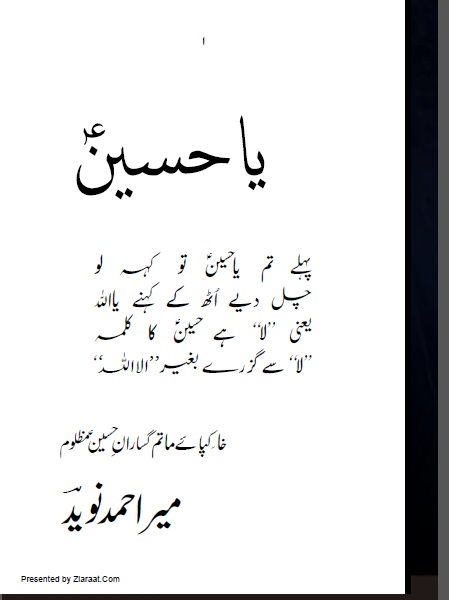 ۱
یا حسینؑ
پہلے تم یاحسینؑ تو کہہ لو
چل دیے اُٹھ کے کہنے یااللہ
یعنی ”لا“ ہے حسینؑ کا کلمہ
”لا“ سے گزرے بغیر ”الااللہ“
خاکپائے ماتم گسارانِ حسینؑ مظلوم
میر احمد نوید
Presented by Ziaraat.Com